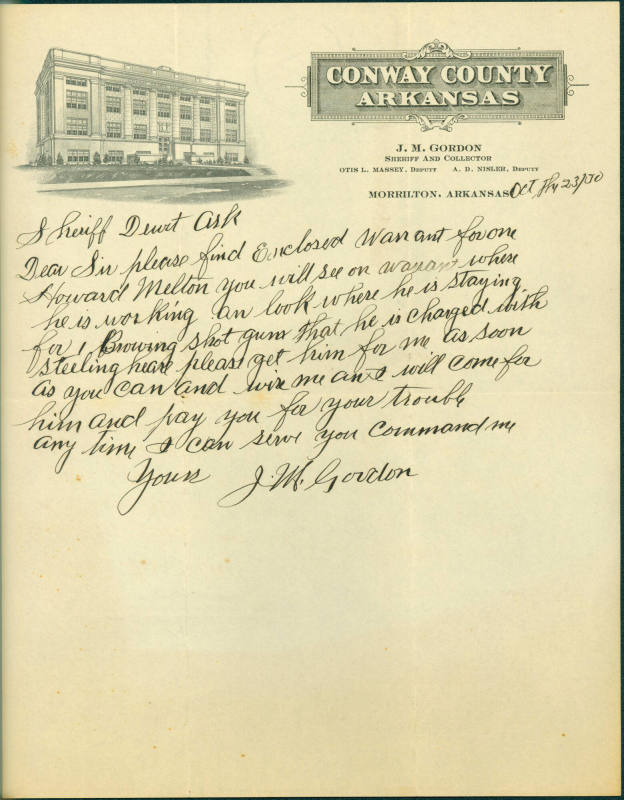 CONWAY COUNTY
ARKANSAS
J. M. GORDON
SHERIFF AND COLLECTOR
OTIS L. MASSEY, DEPUTY A. D. NISLER, DEPUTY
MORRILTON, ARKANSAS Oct the 23/30
Sheriff Dewit Ark
Dear Sir please find Enclosed Warrant for one
Howard Melton you will see on warant where
he is working an look where he is staying
for 1 Browing shot gun That he is charged with
steeling heare please get him for me as soon
as you can and wire me an I will come for
him and pay you for your trouble
any time I can serve you command me
Yours J. M. Gordon